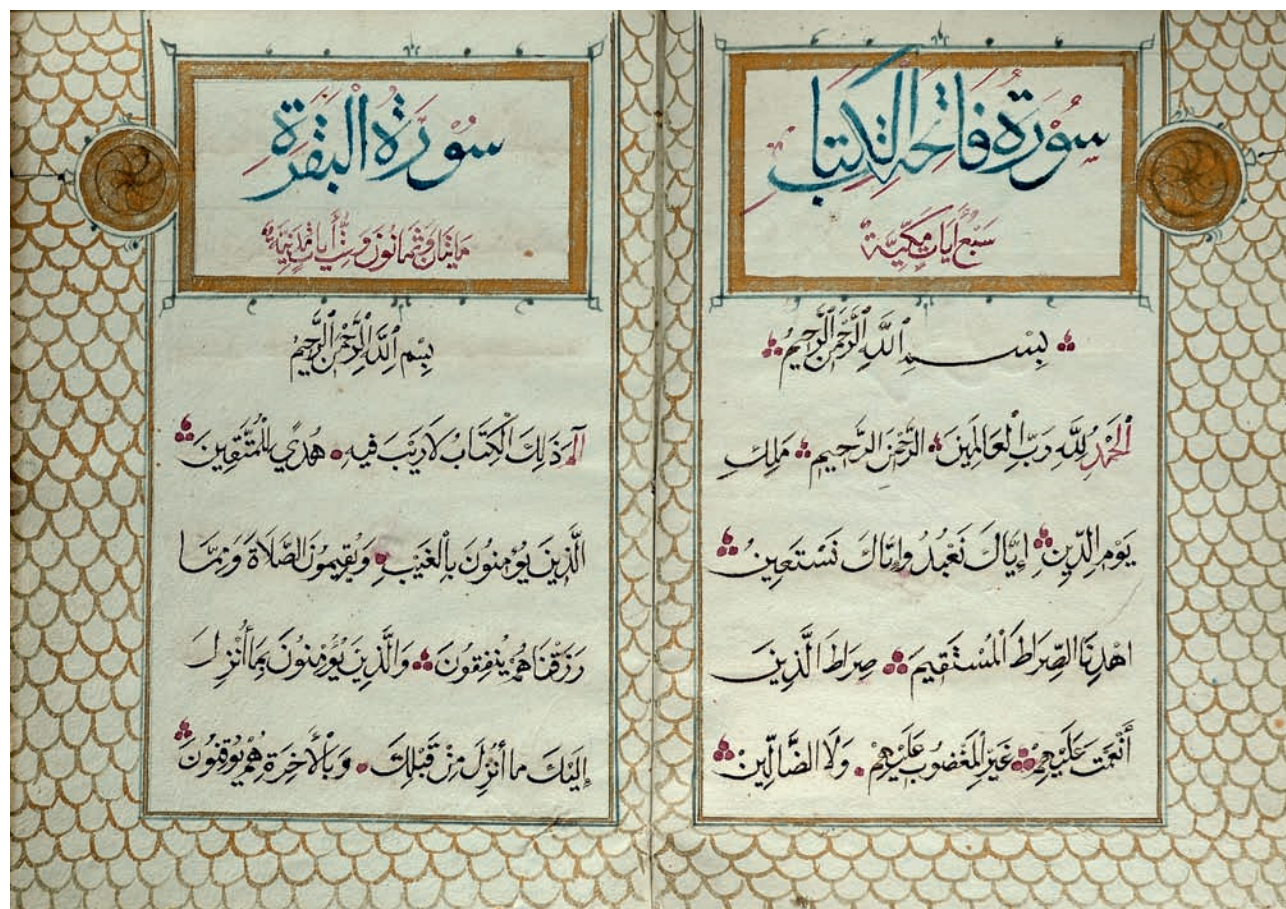 سُورَةُ فَاتِحَةِ الْكِتَابِ
سَبْعُ أيَاتٍ مَكِّيَّةٌ
بِسْمِ اللَّهِ الرَّحْمَنِ الرَّحِيمِ
الْحَمْدُ لِلَّهِ رَبِّ الْعَالَمِينَ الرَّحْمَنِ الرَّحِيمِ مَلِكِ
يَوْمِ الدِّينِ إِيَّاكَ نَعْبُدُ وَإِيَّاكَ نَسْتَعِينُ
اهْدِنَا الصِّرَاطَ الْمُسْتَقِيمَ صِرَاطَ الَّذِينَ
أَنْعَمْتَ عَلَيْهِمْ غَيْرِ الْمَغْضُوبِ عَلَيْهِمْ وَلَا الضَّالِّينَ
سُورَةُ الْبَقَرَةِ
مايتان وَثمانُونَ وَسِتُّ أيات مَدَنِيَّة
بِسْمِ اللَّهِ الرَّحْمَنِ الرَّحِيمِ
الٓمٓ ذَلِكَ الْكِتَابُ لَا رَيْبَ فِيهِ هُدًي لِلْمُتَّقِينَ
الَّذِينَ يُؤْمِنُونَ بِالْغَيْبِ وَيُقِيمُونَ الصَّلَاةَ وَمِمَّا
رَزَقْنَاهُمْ يُنْفِقُونَ وَالَّذِينَ يُؤْمِنُونَ بِمَا أُنْزِلَ
إِلَيْكَ وما أُنْزِلَ مِنْ قَبْلِكَ وَبِالْأَخِرَةِ هُمْ يُوقِنُونَ